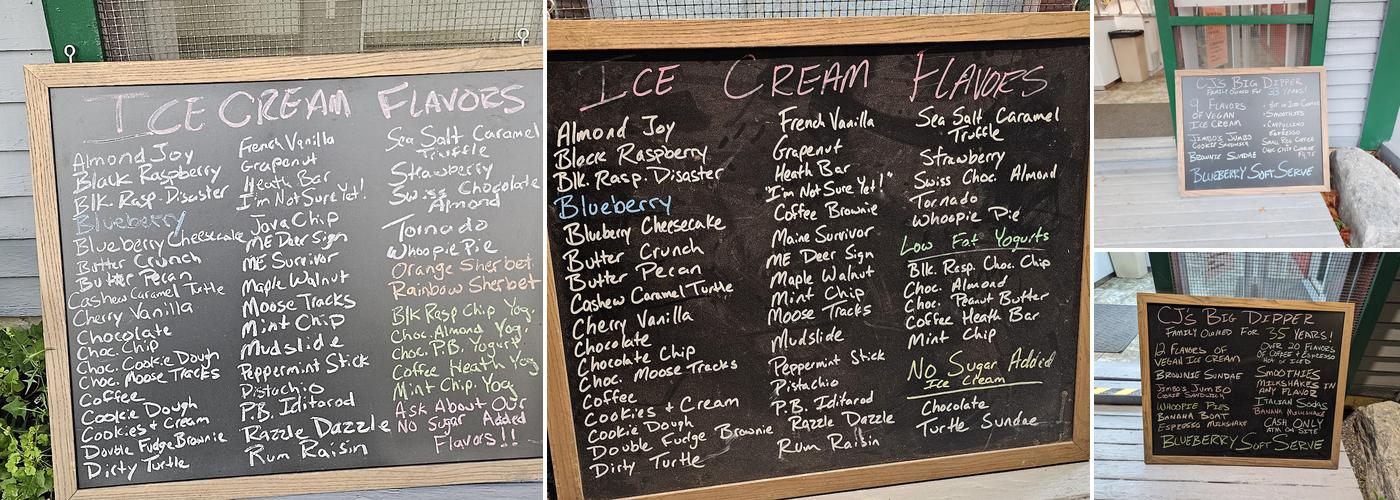 ICE CREAM FLAVORS
Almond Joy
Black Raspberry
Blk. Rasp. Disaster
Blueberry
Blueberry Cheesecake
Butter Crunch
Butter Pecan
Cashew Caramel Turtle
Cherry Vanilla
Chocolate
Choc. Chip
Choc. Cookie Dough
Choc. Moose Tracks
Coffee
Cookie Dough
Cookies + Cream
Double Fudge Brownie
Dirty Turtle
French Vanilla
Grapenut
Heath Bar
I'm Not Sure Yet!
Java Chip
ME Deer Sign
ME Survivor
Maple Walnut
Moose Tracks
Mint Chip
Mudslide
Peppermint Stick
Pistachio
P.B. Iditarod
Razzle Dazzle
Rum Raisin
Sea Salt Caramel
Truffle
Strawberry
Swiss Chocolate
Almond
Tornado
Whoopie Pie
Orange Sherbet
Rainbow Sherbet
Blk Rasp Chip Yog.
Choc. Almond Yog.
Choc. P.B. Yogurt
Coffee Heath Yog
Mint Chip. Yog
Ask About Our
No Sugar Added
Flavors!!
ICE CREAM FLAVORS
Almond Joy
Black Raspberry
Blk. Rasp. Disaster
Blueberry
Blueberry Cheesecake
Butter Crunch
Butter Pecan
Cashew Caramel Turtle
Cherry Vanilla
Chocolate
Chocolate Chip
Choc. Moose Tracks
Coffee
Cookies + Cream
Cookie Dough
Double Fudge Brownie
Dirty Turtle
French Vanilla
Grapenut
Heath Bar
"I'm Not Sure Yet!"
Coffee Brownie
Maine Survivor
ME Deer Sign
Maple Walnut
Mint Chip
Moose Tracks
Mudslide
Peppermint Stick
Pistachio
P.B. Iditarod
Razzle Dazzle
Rum Raisin
Sea Salt Caramel
Truffle
Strawberry
Swiss Choc. Almond
Tornado
Whoopie Pie
Low Fat Yogurts
Blk. Rasp. Choc. Chip
Choc. Almond
Choc. Peanut Butter
Coffee Heath Bar
Mint Chip
No Sugar Added
Ice Cream
Chocolate
Turtle Sundae
CJ'S BIG DIPPER
FAMILY OWNED FOR 33 YEARS!
9 FLAVORS
OF VEGAN
ICE CREAM
JIMBO'S JUMBO
COOKIE SANDWICH
BROWNIE SUNDAE
• SMOOTHIES
• CAPPUCCINO
ESPRESSO
SMALL
BLUEBERRY SOFT SERVE
CJ'S BIG DIPPER
FAMILY OWNED FOR 35 YEARS!
12 FLAVORS OF
VEGAN ICE CREAM
BROWNIE SUNDAE
JIMBO'S JUMBO
COOKIE SANDWICH
WHOOPIE PIES
BANANA BOAT
ESPRESSO MILKSHAKE
OVER 20 FLAVORS
OF COFFEE + ESPRESSO
HOT OR ICED
SMOOTHIES
MILKSHAKES IN
ANY FLAVOR
ITALIAN SODAS
BANANA MILKSHAKE
CASH ONLY
ATM ON SITE
BLUEBERRY SOFT SERVE